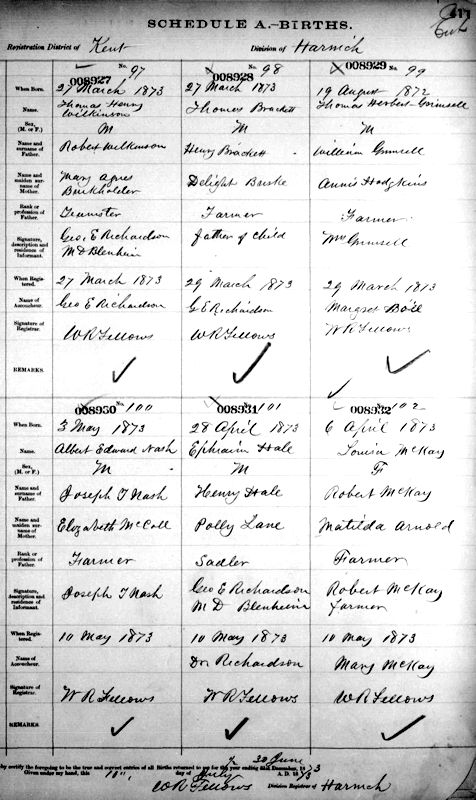 417
SCHEDULE A.—BIRTHS.
Registration District of Kent Division of Harwich
008927 No. 97 008928 No. 98 008929 No. 99
When Born. 27 March 1873 27 March 1873 19 August 1872
Name. Thomas Henry Wilkinson Thomas Brackett Thomas Herbert Grimsell
Sex, (M. or F.) M M M
Name and surname of Father. Robert Wilkinson Henry Brackett William Grimsell
Name and maiden surname of Mother. Mary Agnes Burkholder Delight Annie Hodgkins
Rank or profession of Father. Teamster Farmer Farmer
Signature, description and residence of Informant. Geo. E Richardson MD Blenheim Father of Child Wm Grimsell
When Registered. 27 March 1873 29 March 1873 29 March 1873
Name of Accoucheur. Geo E Richardson G E Richardson Margret
Signature of Registrar. W R Fellows W R Fellows W R Fellows
REMARKS.
008930 No. 100 008931 No. 101 008932 No. 102
When Born. 3 May 1873 28 April 1873 6 April 1873
Name. Albert Edward Nash Ephraim Hale Louisa McKay
Sex, (M. or F.) M M F
Name and surname of Father. Joseph T Nash Henry Hale Robert McKay
Name and maiden surname of Mother. Elizabeth McColl Polly Lane Matilda Arnold
Rank or profession of Father. Farmer Sadler Farmer
Signature, description and residence of Informant. Joseph T Nash Geo E Richardson M D Blenheim Robert McKay farmer
When Registered. 10 May 1873 10 May 1873 10 May 1873
Name of Accoucheur. Dr Richardson Mary McKay
Signature of Registrar. W R Fellows W R Fellows W R Fellows
REMARKS.
by certify the foregoing to be the true and correct entries of all Births returned to me for the year ending 30 June 1873
Given under my hand, this 10th day of July A.D. 1873
W R Fellows Division Registrar of Harwich